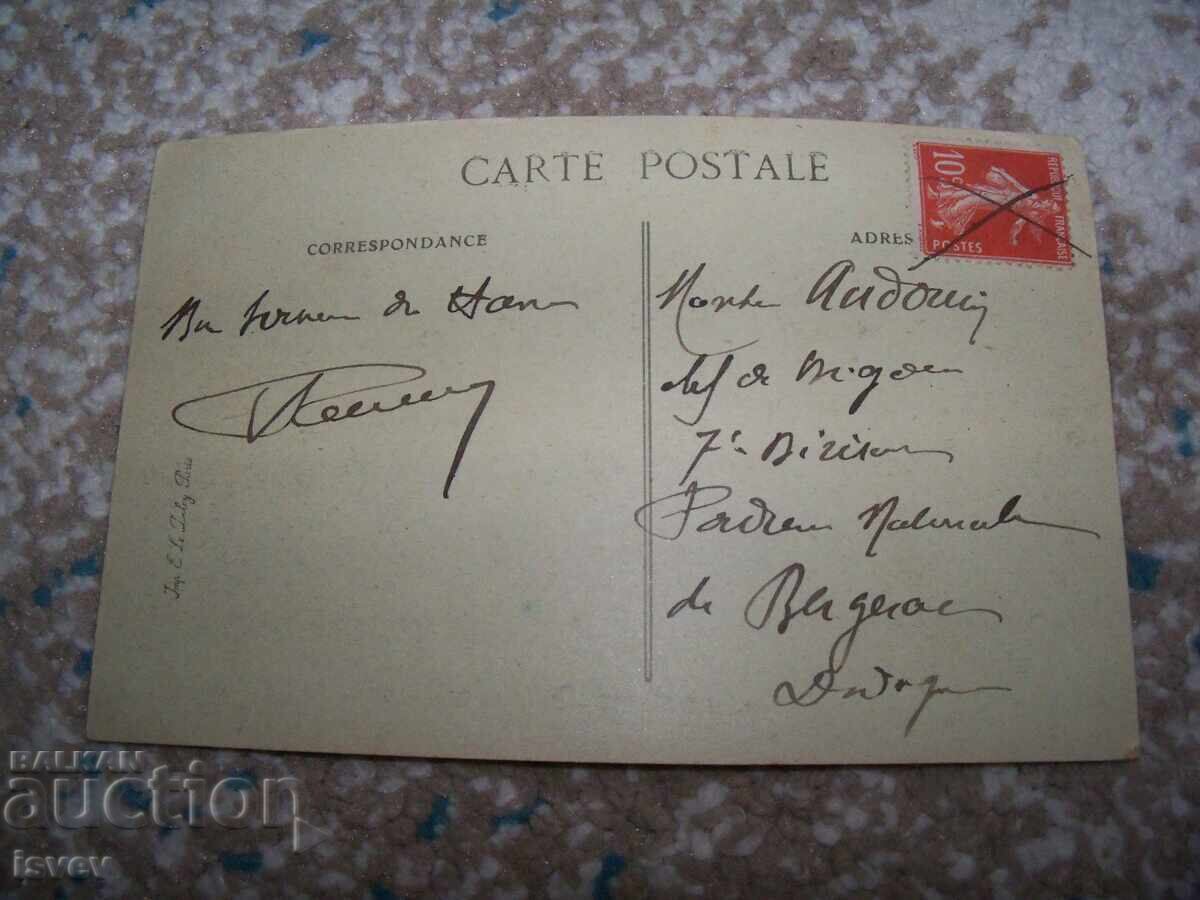 CARTE POSTALE
CORRESPONDANCE
ADRES
10c
REPUBLIQUE FRANÇAISE
POSTES
Bon Souvenir de
Audouin
chef de Brigade
7e Division
Poudrerie Nationale
de Bergerac
Dordogne
Imp. E. Le Deley Paris
BALKAN
auction
isvev